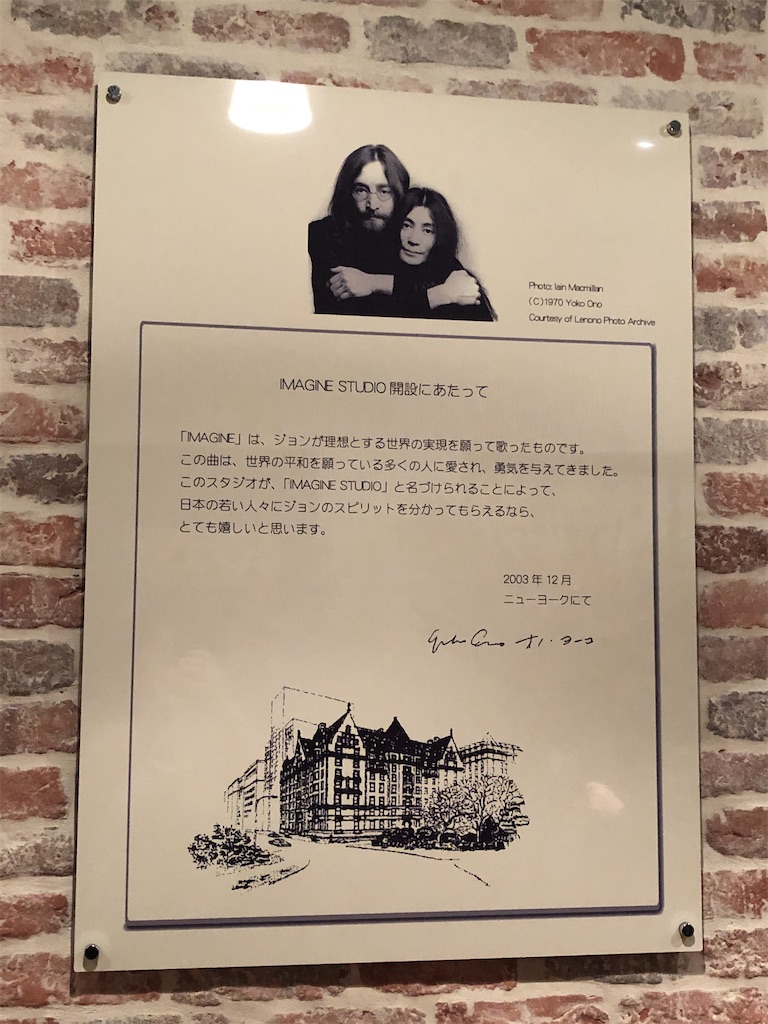 Photo: Iain Macmillan
(C)1970 Yoko Ono
Courtesy of Lenono Photo Archive
IMAGINE STUDIO 開設にあたって
「IMAGINE」は、ジョンが理想とする世界の実現を願って歌ったものです。
この曲は、世界の平和を願っている多くの人に愛され、勇気を与えてきました。
このスタジオが、「IMAGINE STUDIO」と名づけられることによって、
日本の若い人々にジョンのスピリットを分かってもらえるなら、
とても嬉しいと思います。
2003 年 12 月
ニューヨークにて
Yoko Ono オノ・ヨーコ